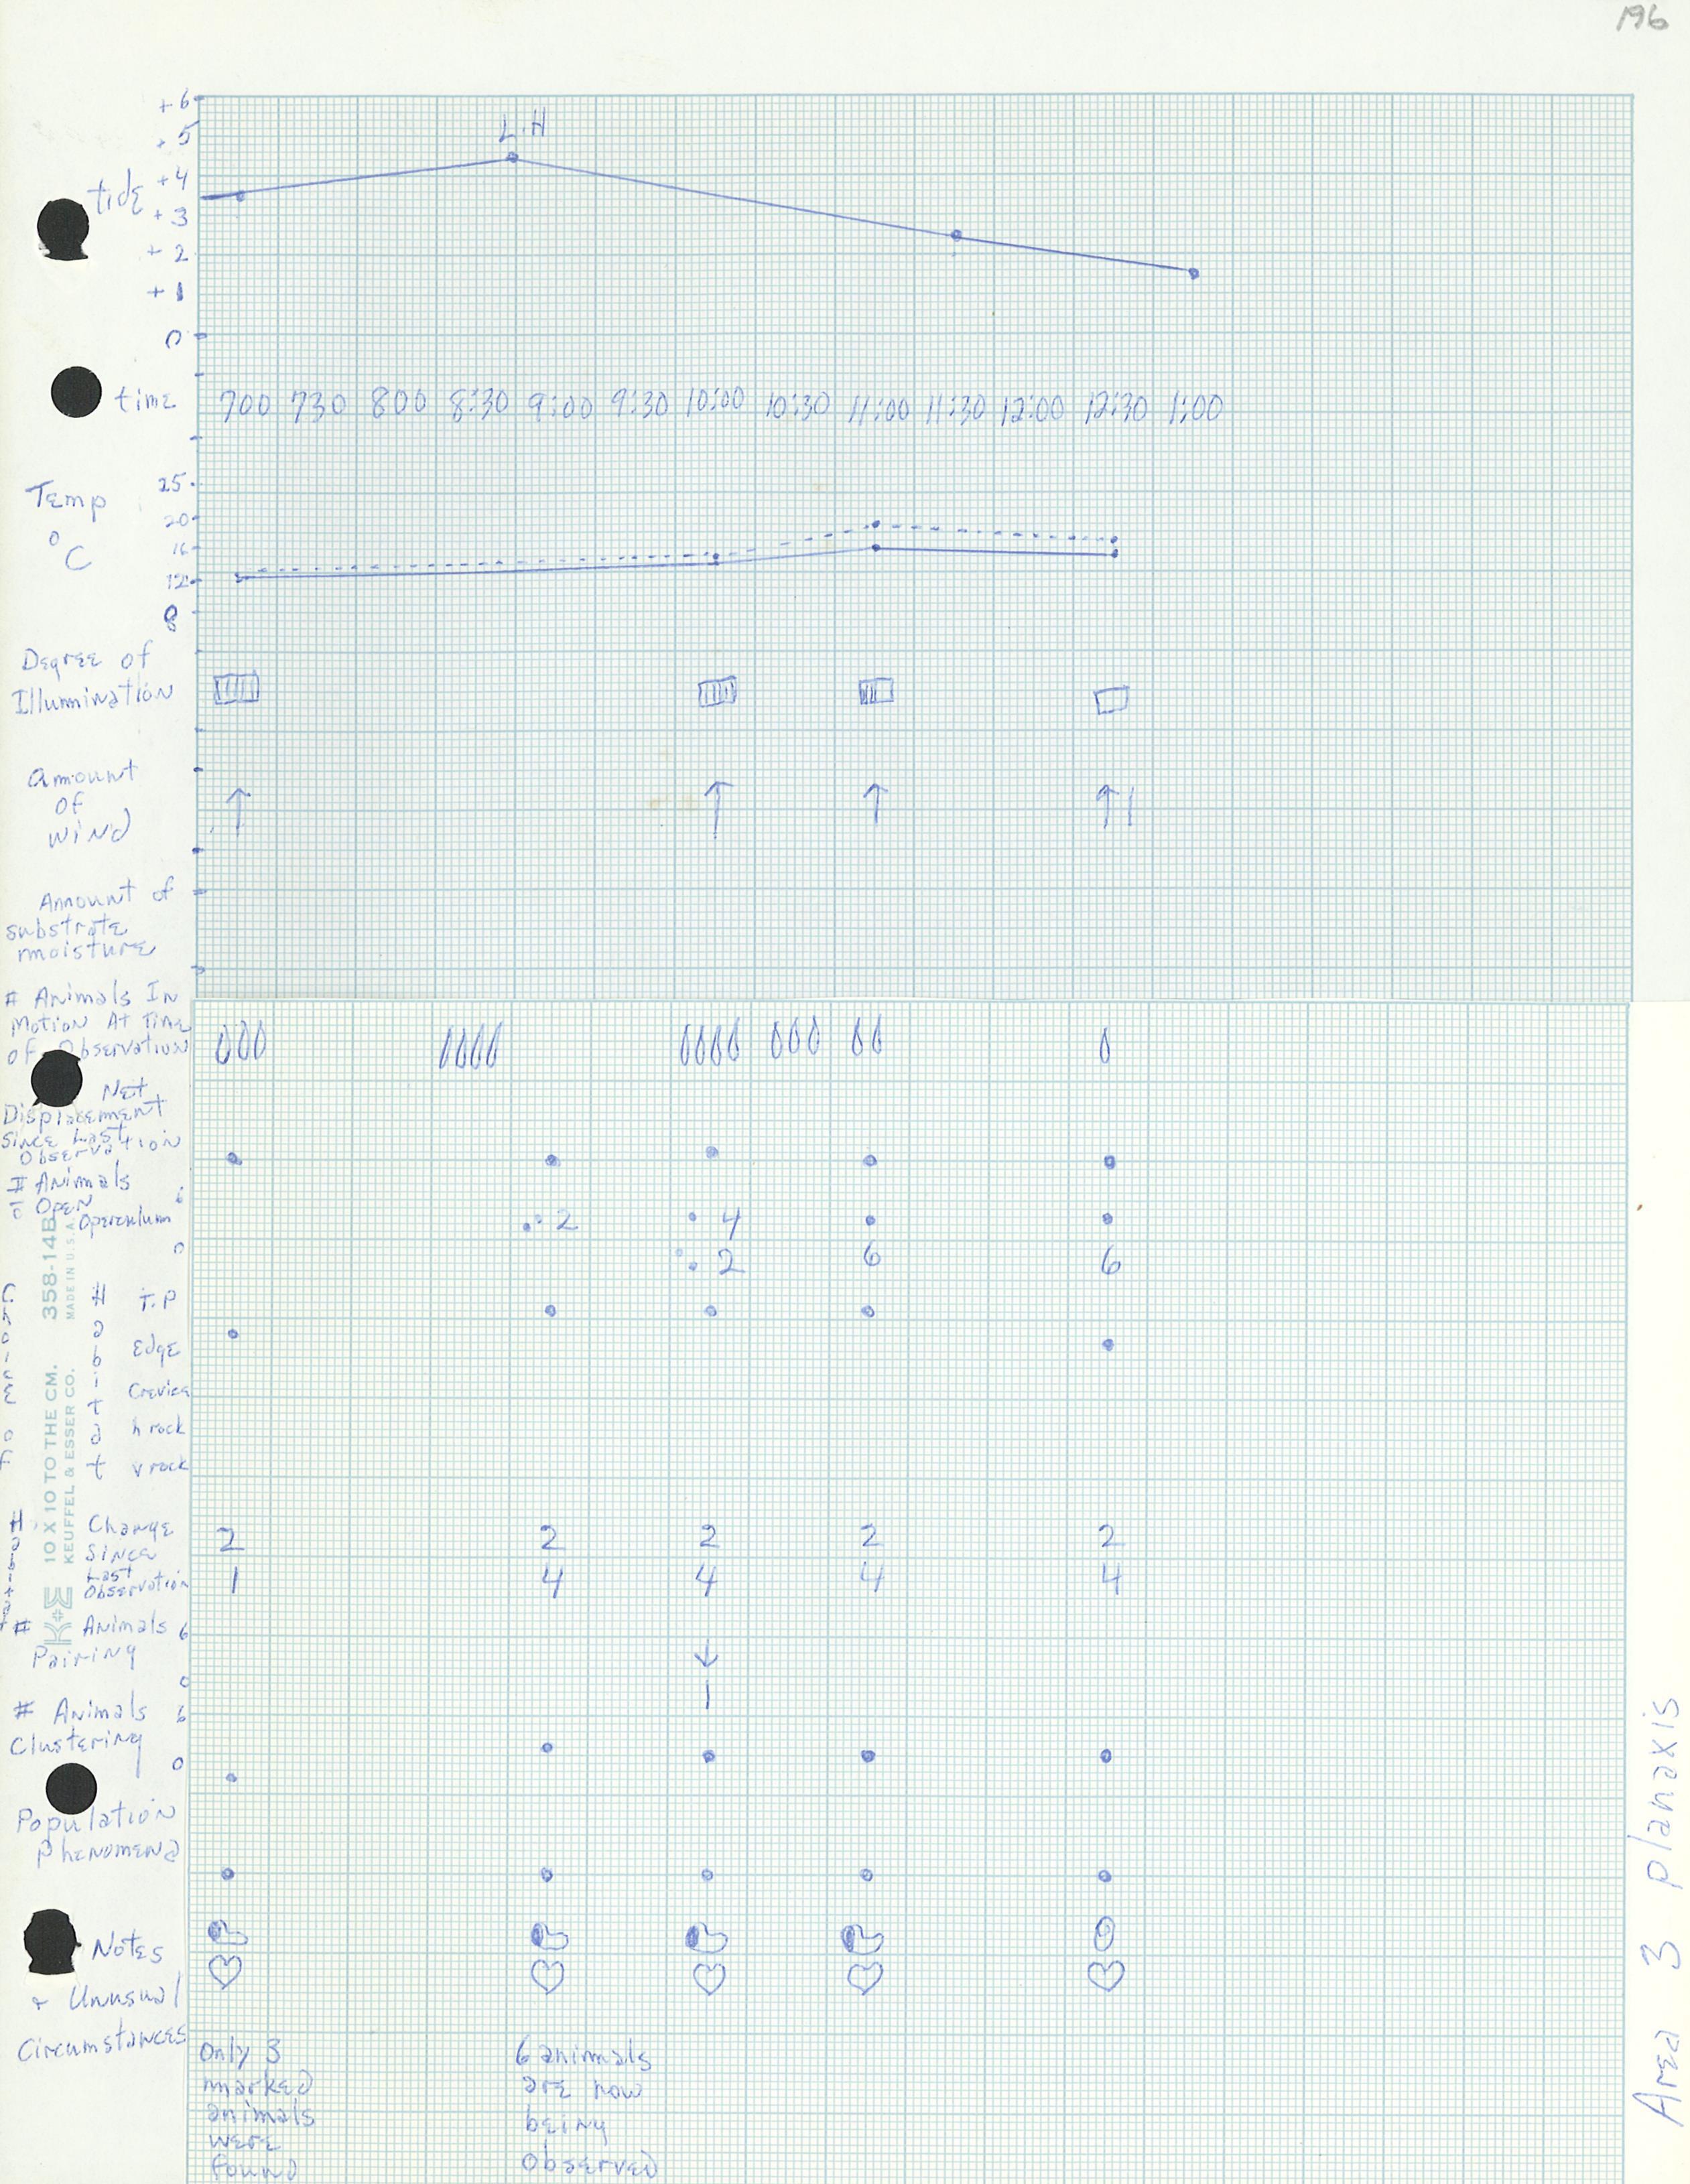 196
+6
+5
L.H
tide
+4
+3
+2
+1
0
time 700 730 800 8:30 9:00 9:30 10:00 10:30 11:00 11:30 12:00 12:30 1:00
Temp
°C
25
20
16
12
8
Degree of
Illumination
amount
of
wind
Amount of
substrate
moisture
# Animals In
Motion At Time
of Observation
Net
Displacement
since Last
Observation
# Animals
Open
Operculum
2 4
0 2 6 6
# T.P
Habitat
Edge
Crevice
h rock
v rock
Change 2 2 2 2 2
Since
Last
Observation 1 4 4 4 4
# Animals 6
Pairing
0
# Animals 6
Clustering
0
Population
Phenomena
Notes
+ Unusual
Circumstances
Only 3
marked
animals
were
found
6 animals
are now
being
observed
Area 3 planaxis
K+E 10 X 10 TO THE CM. 358-14B
KEUFFEL & ESSER CO. MADE IN U.S.A.